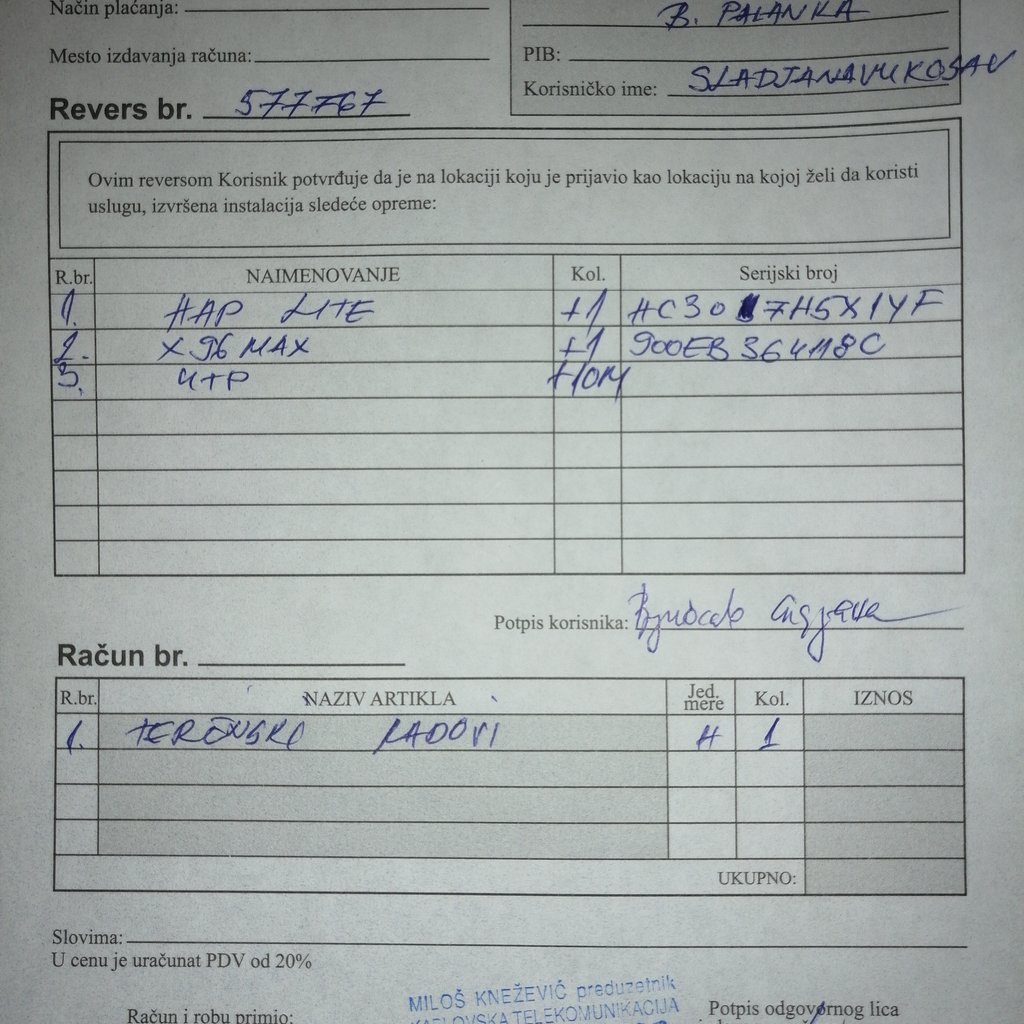 Način plaćanja:
B. PALANKA
Mesto izdavanja računa:
PIB:
Korisničko ime: SLADJANAVUKOSAV
Revers br. 577767
Ovim reversom Korisnik potvrđuje da je na lokaciji koju je prijavio kao lokaciju na kojoj želi da koristi
uslugu, izvršena instalacija sledeće opreme:
R.br. NAIMENOVANJE Kol. Serijski broj
1. HAP LITE +1 HC307H5X1YF
2. X96 MAX +1 900EB364118C
3. UTP +10M
Potpis korisnika:
Račun br.
R.br. NAZIV ARTIKLA Jed. mere Kol. IZNOS
1. TERENSKI RADOVI H 1
UKUPNO:
Slovima:
U cenu je uračunat PDV od 20%
MILOŠ KNEŽEVIĆ preduzetnik
KARLOVSKA TELEKOMUNIKACIJA
Račun i robu primio:
Potpis odgovornog lica